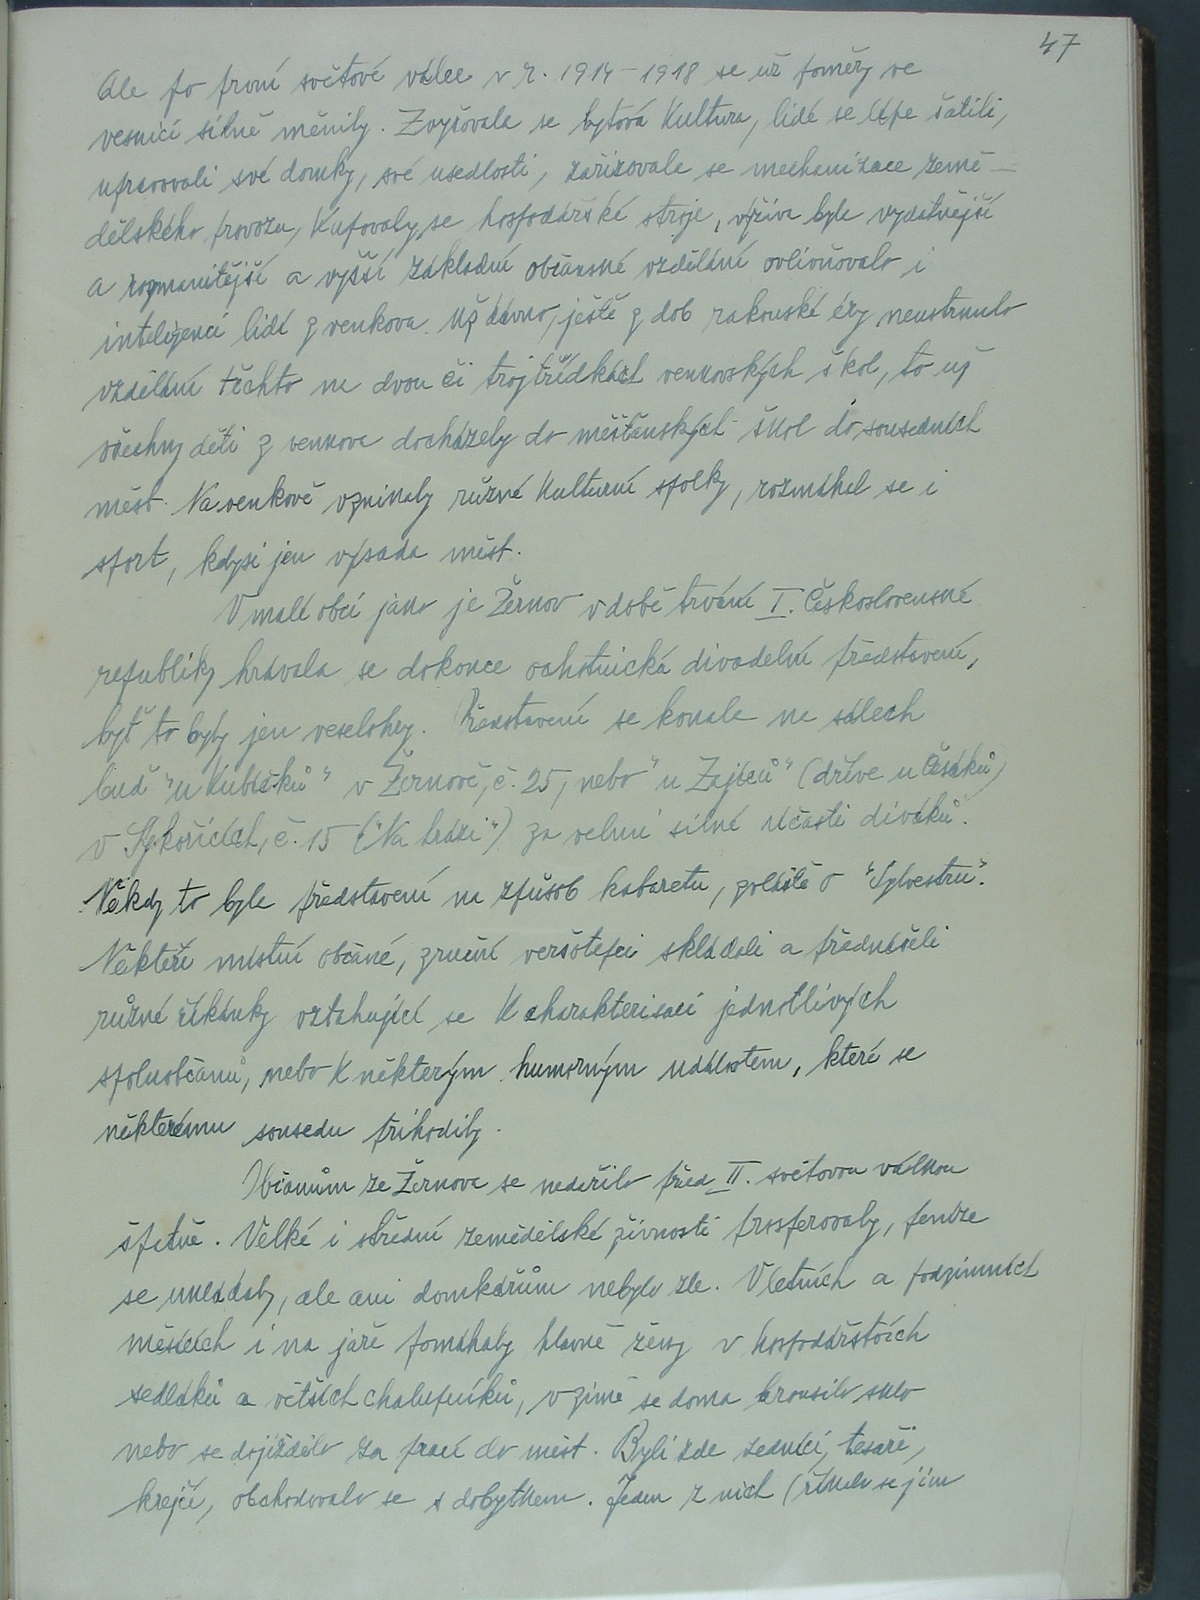 47
Ale po první světové válce v r. 1914–1918 se už poměry ve
vesnici silně měnily. Zvyšovala se bytová kultura, lidé se lépe šatili,
upravovali své domky, své usedlosti, zařizovala se mechanizace země-
dělského provozu, kupovaly se hospodářské stroje, výživa byla vydatnější
a rozmanitější a vyšší základní občanské vzdělání ovlivňovalo i
inteligenci lidí z venkova. Už dávno, ještě z dob rakouské éry neustrnulo
vzdělání těchto na dvou či trojtřídkách venkovských škol, to už
všechny děti z venkova docházely do měšťanských škol do sousedních
měst. Na venkově vznikaly různé kulturní spolky, rozmáhal se i
sport, kdysi jen výsada měst.
V malé obci jako je Žernov v době trvání I. Československé
republiky hrávala se dokonce ochotnická divadelní představení,
byť to byly jen veselohry. Představení se konala na sálech
buď "u Kubíčků" v Žernově, č. 25, nebo "u Zajíců" (dříve u Česáků)
v Sýkořicích, č. 15 ("Na hrázi") za velmi silné účasti diváků.
Někdy to byla představení na způsob kabaretu, zvláště o "Sylvestru".
Někteří místní občané, zruční veršotepci skládali a přednášeli
různé říkánky vztahující se k charakterisaci jednotlivých
spoluobčanů, nebo k některým humorným událostem, které se
některému sousedu přihodily.
Občanům ze Žernova se nedařilo před II. světovou válkou
špatně. Velké i střední zemědělské živnosti prosperovaly, peníze
se ukládaly, ale ani domkářům nebylo zle. V letních a podzimních
měsících i na jaře pomáhaly hlavně ženy v hospodářstvích
sedláků a větších chalupníků, v zimě se doma brousilo sklo
nebo se dojíždělo za prací do měst. Byli zde zedníci, tesaři,
krejčí, obchodovalo se s dobytkem. Jeden z nich (říkalo se jim